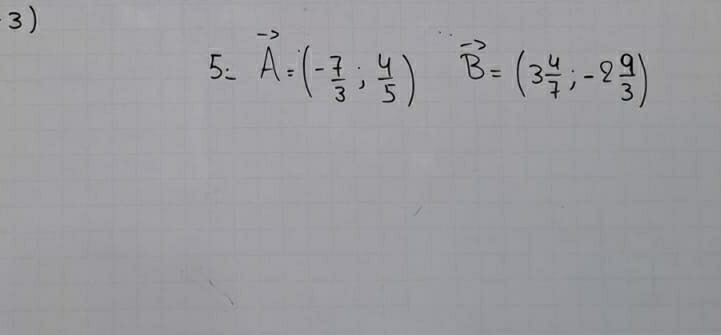 3)
5:- A⃗ = (-7/3 ; 4/5) B⃗ = (3 4/7 ; -2 9/3)